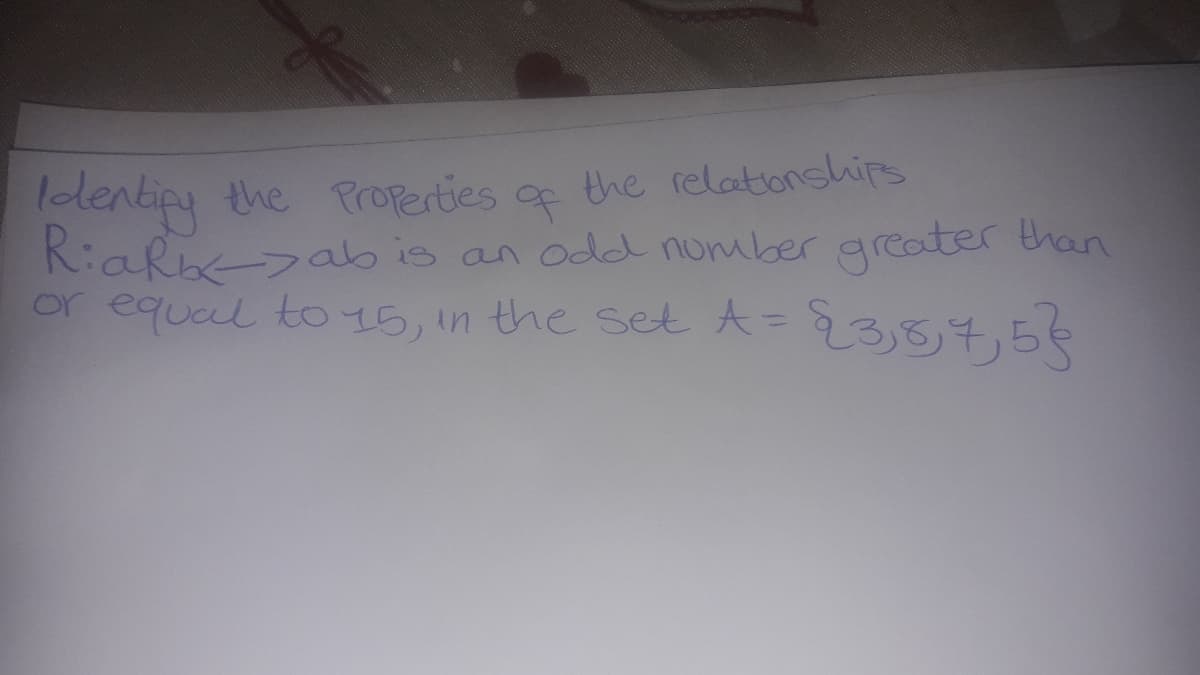 Identify the Properties of the relationships
R:aRb<->ab is an odd number greater than
or equal to 15, in the set A = {3,8,7,5}